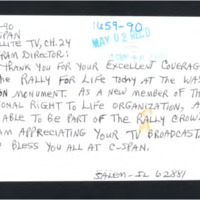 -90
1659-90
SPAN
MAY 02 REC'D
LLITE TV, CH.24
RAM DIRECTOR:
THANK YOU FOR YOUR EXCELLENT COVERAG
THE RALLY FOR LIFE TODAY AT THE WAS
ON MONUMENT. AS A NEW MEMBER OF TH
IONAL RIGHT TO LIFE ORGANIZATION, A
ABLE TO BE PART OF THE RALLY CROW
AM APPRECIATING YOUR TV BROADCAST
D BLESS YOU ALL AT C-SPAN.
SALEM-IL 62881